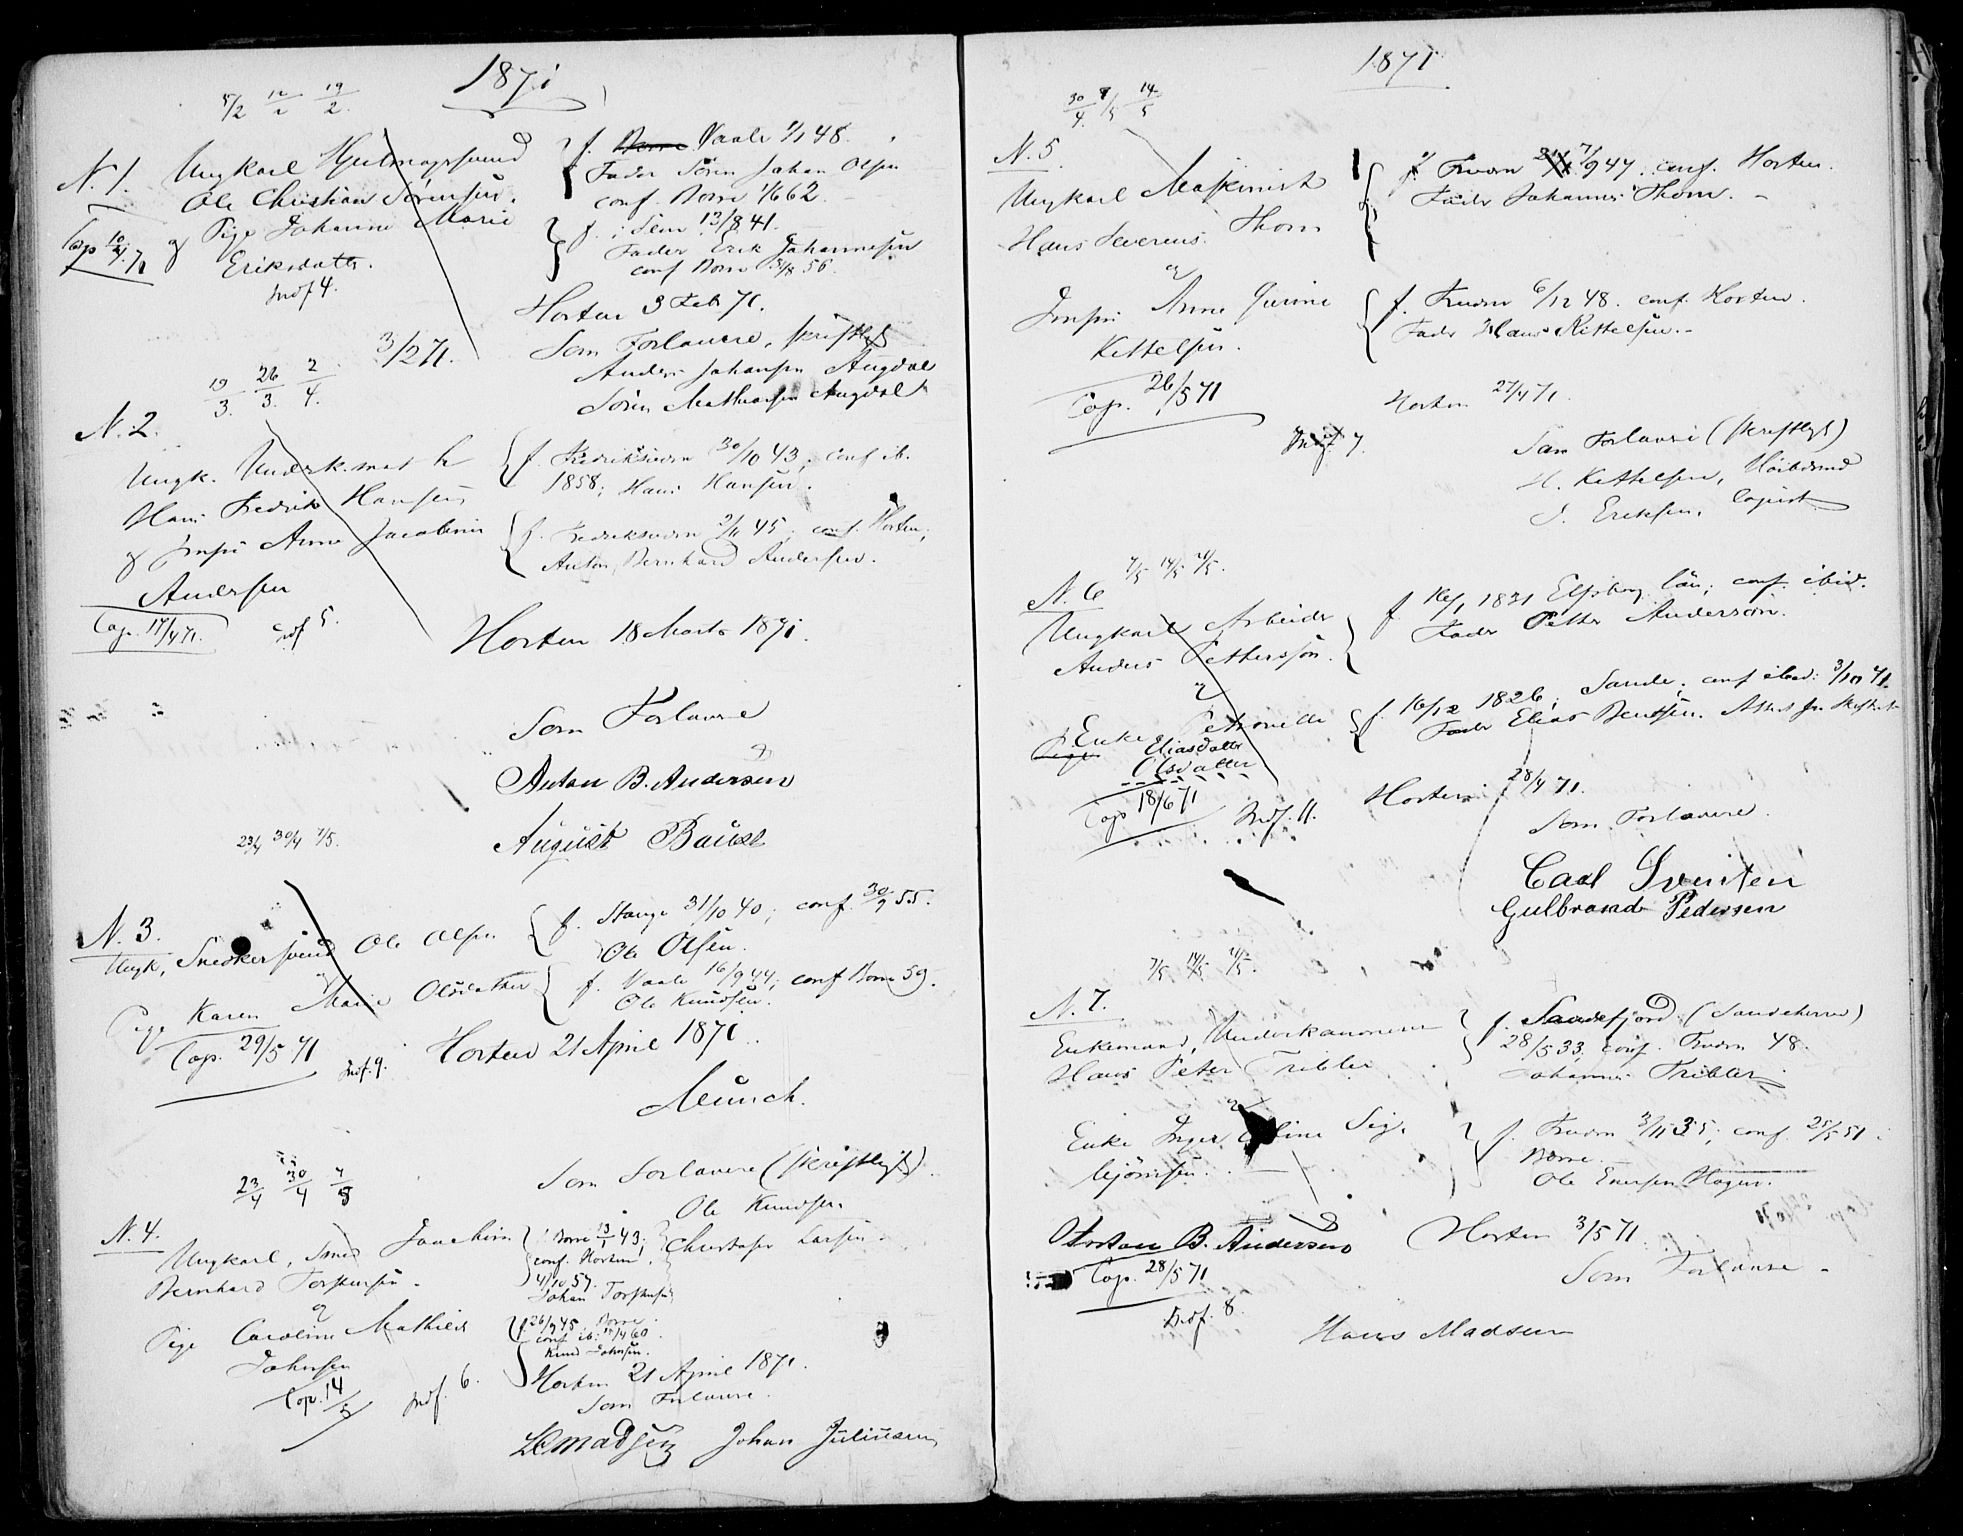 1871
5/2 12/2 19/2.
N. 1. Ungkarl Hjulmagersvend
Ole Christian Sørensen.
Cop 10/4 71
og Pige Johanne Marie
Eriksdatter.
Indf 4.
f. Vaale 1/1 48.
Fader Sören Johan Olsen
conf. Borre 62.
f. i Sem 13/8 41.
Fader Erik Johannesen
conf Borre 56.
Horten 3 Feb 71.
3/2 71.
Som Forlovere, skriftligt
Anders Johansen Augdal
Sören Mathiasen Augdal
19/3. 26/3. 2/4.
N. 2.
Ungk.
Hans Fredrik Hansen
og Jmfr Anne Jacobine
Andersen
Cop. 17/4 71.
Indf 5.
f. Fredriksværn 30/10 43; conf ib.
1858; Hans Hansen.
f. Fredriksværn 45; conf. Horten;
Anton Bernhard Andersen.
Horten 18 Marts 1871.
Som Forlovere
Anton B. Andersen
August Baust
23/4 30/4 7/5.
N. 3.
Ungk, Snedkersvend Ole Olsen
og
Pige Karen Marie Olsdatter
Cop. 29/5 71
Indf. 9.
f. Stange 31/10 40; conf. 30/9 55.
Ole Olsen.
f. Vaale 16/9 44; conf Borre 59.
Ole Knudsen.
Horten 21 April 1871.
Münch.
Som Forlovere (skriftligt).
Ole Knudsen
Christopher Larsen
23/4 30/4 7/5
N. 4.
Ungkarl, Smed Joachim
Bernhard Torstensen.
og
Pige Caroline Mathilde
Johnsen
Cop. 14/5
Indf. 6.
f. Borre 43;
conf. Horten,
4/10 57.
Johan Torstensen
f. 26/9 45, Borre
conf ib: 60.
Knud Johnsen.
Horten 21 April 1871.
Som Forlovere.
Madsen Johan Juliussen
1871
30/4. 7/5 14/5
N. 5.
Ungkarl Maskinist
Hans Severens Thom
og
Jmfr. Anne Gurine
Kittelsen.
Cop. 26/5 71
Indf 7.
f. Fværn 47. conf. Horten.
Fader Johannes Thom.
f. Fværn 6/12 48. conf. Horten.
Fader Hans Kittelsen.
Horten 27/4 71.
Som Forlovere (skriftligt)
H. Kittelsen, Høibdsmd
J. Eriksen, Copiist
7/5 14/5 21/5.
N. 6
Ungkarl Arbeider
Anders Pettersson.
og
Enke Petronelle
Pige Eliasdatter
Olsdatter
Cop 18/6 71
Indf. 11.
f. 16/1 1831 Elfsborg län; conf. ibid.
Fader Petter Anderson.
f. 16/12 1826; Sande; conf ibid: 3/10 41.
Fader Elias Bentsen.
Horten 28/4 71.
Som Forlovere.
Carl Svensen
Gulbrand Pedersen
7/5 14/5 21/5.
N. 7.
Enkemand, Underkanonerer
Hans Peter Tribler
og
Enke Inger Sig.
Bjørnsen.
f. Sandefjord (Sandeherred)
28/5 33, conf. Fværn 48.
Johannes Tribler
f. Fværn 3/11 35; conf. 25/5 51 i
Borre.
Ole Enersen Hagen.
Anton B. Andersen
Cop. 28/5 71
Indf. 8.
Horten 3/5 71
Som Forlovere.
Hans Madsen